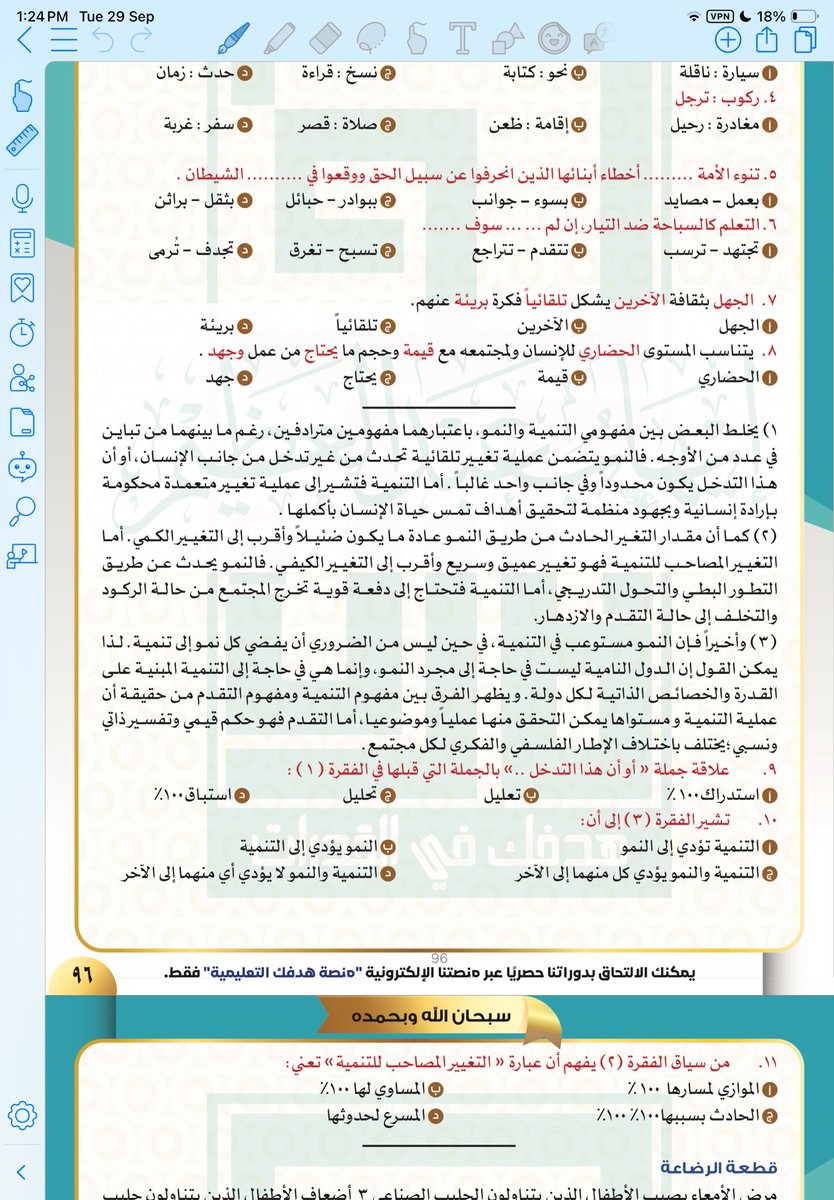 1:24 PM Tue 29 Sep VPN 18%
أ سيارة : ناقلة ب نحو : كتابة ج نسخ : قراءة د حدث : زمان
٤. ركوب : ترجل
أ مغادرة : رحيل ب إقامة : ظعن ج صلاة : قصر د سفر : غربة
٥. تنوء الأمة ......... أخطاء أبنائها الذين انحرفوا عن سبيل الحق ووقعوا في .......... الشيطان .
أ بعمل – مصايد ب بسوء – جوانب ج ببوادر – حبائل د بثقل – براثن
٦. التعلم كالسباحة ضد التيار، إن لم ... ... سوف .......
أ تجتهد – ترسب ب تتقدم – تتراجع ج تسبح – تغرق د تجدف – تُرمى
٧. الجهل بثقافة الآخرين يشكل تلقائياً فكرة بريئة عنهم.
أ الجهل ب الآخرين ج تلقائياً د بريئة
٨. يتناسب المستوى الحضاري للإنسان ولمجتمعه مع قيمة وحجم ما يحتاج من عمل وجهد .
أ الحضاري ب قيمة ج يحتاج د جهد
١) يخلط البعض بين مفهومي التنمية والنمو، باعتبارهما مفهومين مترادفين، رغم ما بينهما من تباين
في عدد من الأوجه . فالنمو يتضمن عملية تغيير تلقائية تحدث من غير تدخل من جانب الإنسان، أو أن
هذا التدخل يكون محدوداً وفي جانب واحد غالباً . أما التنمية فتشير إلى عملية تغيير متعمدة محكومة
بإرادة إنسانية وبجهود منظمة لتحقيق أهداف تمس حياة الإنسان بأكملها .
(٢) كما أن مقدار التغير الحادث من طريق النمو عادة ما يكون ضئيلاً وأقرب إلى التغيير الكمي. أما
التغيير المصاحب للتنمية فهو تغيير عميق وسريع وأقرب إلى التغيير الكيفي . فالنمو يحدث عن طريق
التطور البطي والتحول التدريجي، أما التنمية فتحتاج إلى دفعة قوية تخرج المجتمع من حالة الركود
والتخلف إلى حالة التقدم والازدهار.
(٣) وأخيراً فإن النمو مستوعب في التنمية، في حين ليس من الضروري أن يفضي كل نمو إلى تنمية . لذا
يمكن القول إن الدول النامية ليست في حاجة إلى مجرد النمو، وإنما هي في حاجة إلى التنمية المبنية على
القدرة والخصائص الذاتية لكل دولة . ويظهر الفرق بين مفهوم التنمية ومفهوم التقدم من حقيقة أن
عملية التنمية و مستواها يمكن التحقق منها عملياً وموضوعيا، أما التقدم فهو حكم قيمي وتفسير ذاتي
ونسبي؛ يختلف باختلاف الإطار الفلسفي والفكري لكل مجتمع .
٩. علاقة جملة « أو أن هذا التدخل ..» بالجملة التي قبلها في الفقرة (١) :
أ استدراك١٠٠٪ ب تعليل ج تحليل د استباق١٠٠٪
١٠. تشير الفقرة (٣) إلى أن:
أ التنمية تؤدي إلى النمو ب النمو يؤدي إلى التنمية
ج التنمية والنمو يؤدي كل منهما إلى الآخر د التنمية والنمو لا يؤدي أي منهما إلى الآخر
هدفك في القدرات
96
يمكنك الالتحاق بدوراتنا حصريًا عبر منصتنا الإلكترونية "منصة هدفك التعليمية" فقط.
٩٦
سبحان الله وبحمده
١١. من سياق الفقرة (٢) يفهم أن عبارة « التغيير المصاحب للتنمية » تعني:
أ الموازي لمسارها ١٠٠٪ ب المساوي لها ١٠٠٪
ج الحادث بسببها١٠٠٪ ١٠٠٪ د المسرع لحدوثها
قطعة الرضاعة
مرض الأمعاء يصيب الأطفال الذين يتناولون الحليب الصناعي ٣ أضعاف الأطفال الذين يتناولون حليب